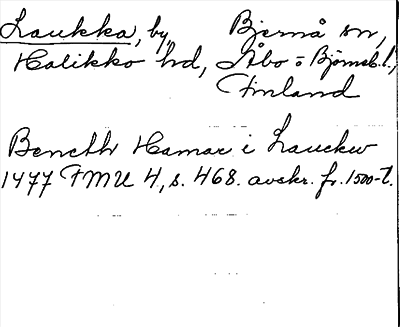 Laukka, by, Bjernå sn,
Halikko hd, Åbo o Björneb. l.,
Finland
Beneth Hamar i Lauckw
1477 FMU 4, s. 468. avskr. fr. 1500-t.